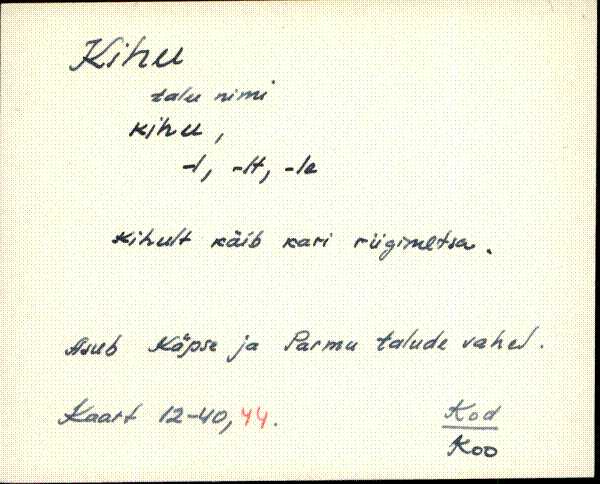 Kihu
talu nimi
kihu,
-l, -lt, -le
kihult käib kari riigimetsa.
Asub Käpse ja Parmu talude vahel.
Kaart 12-40, 44.
Kod
Koo